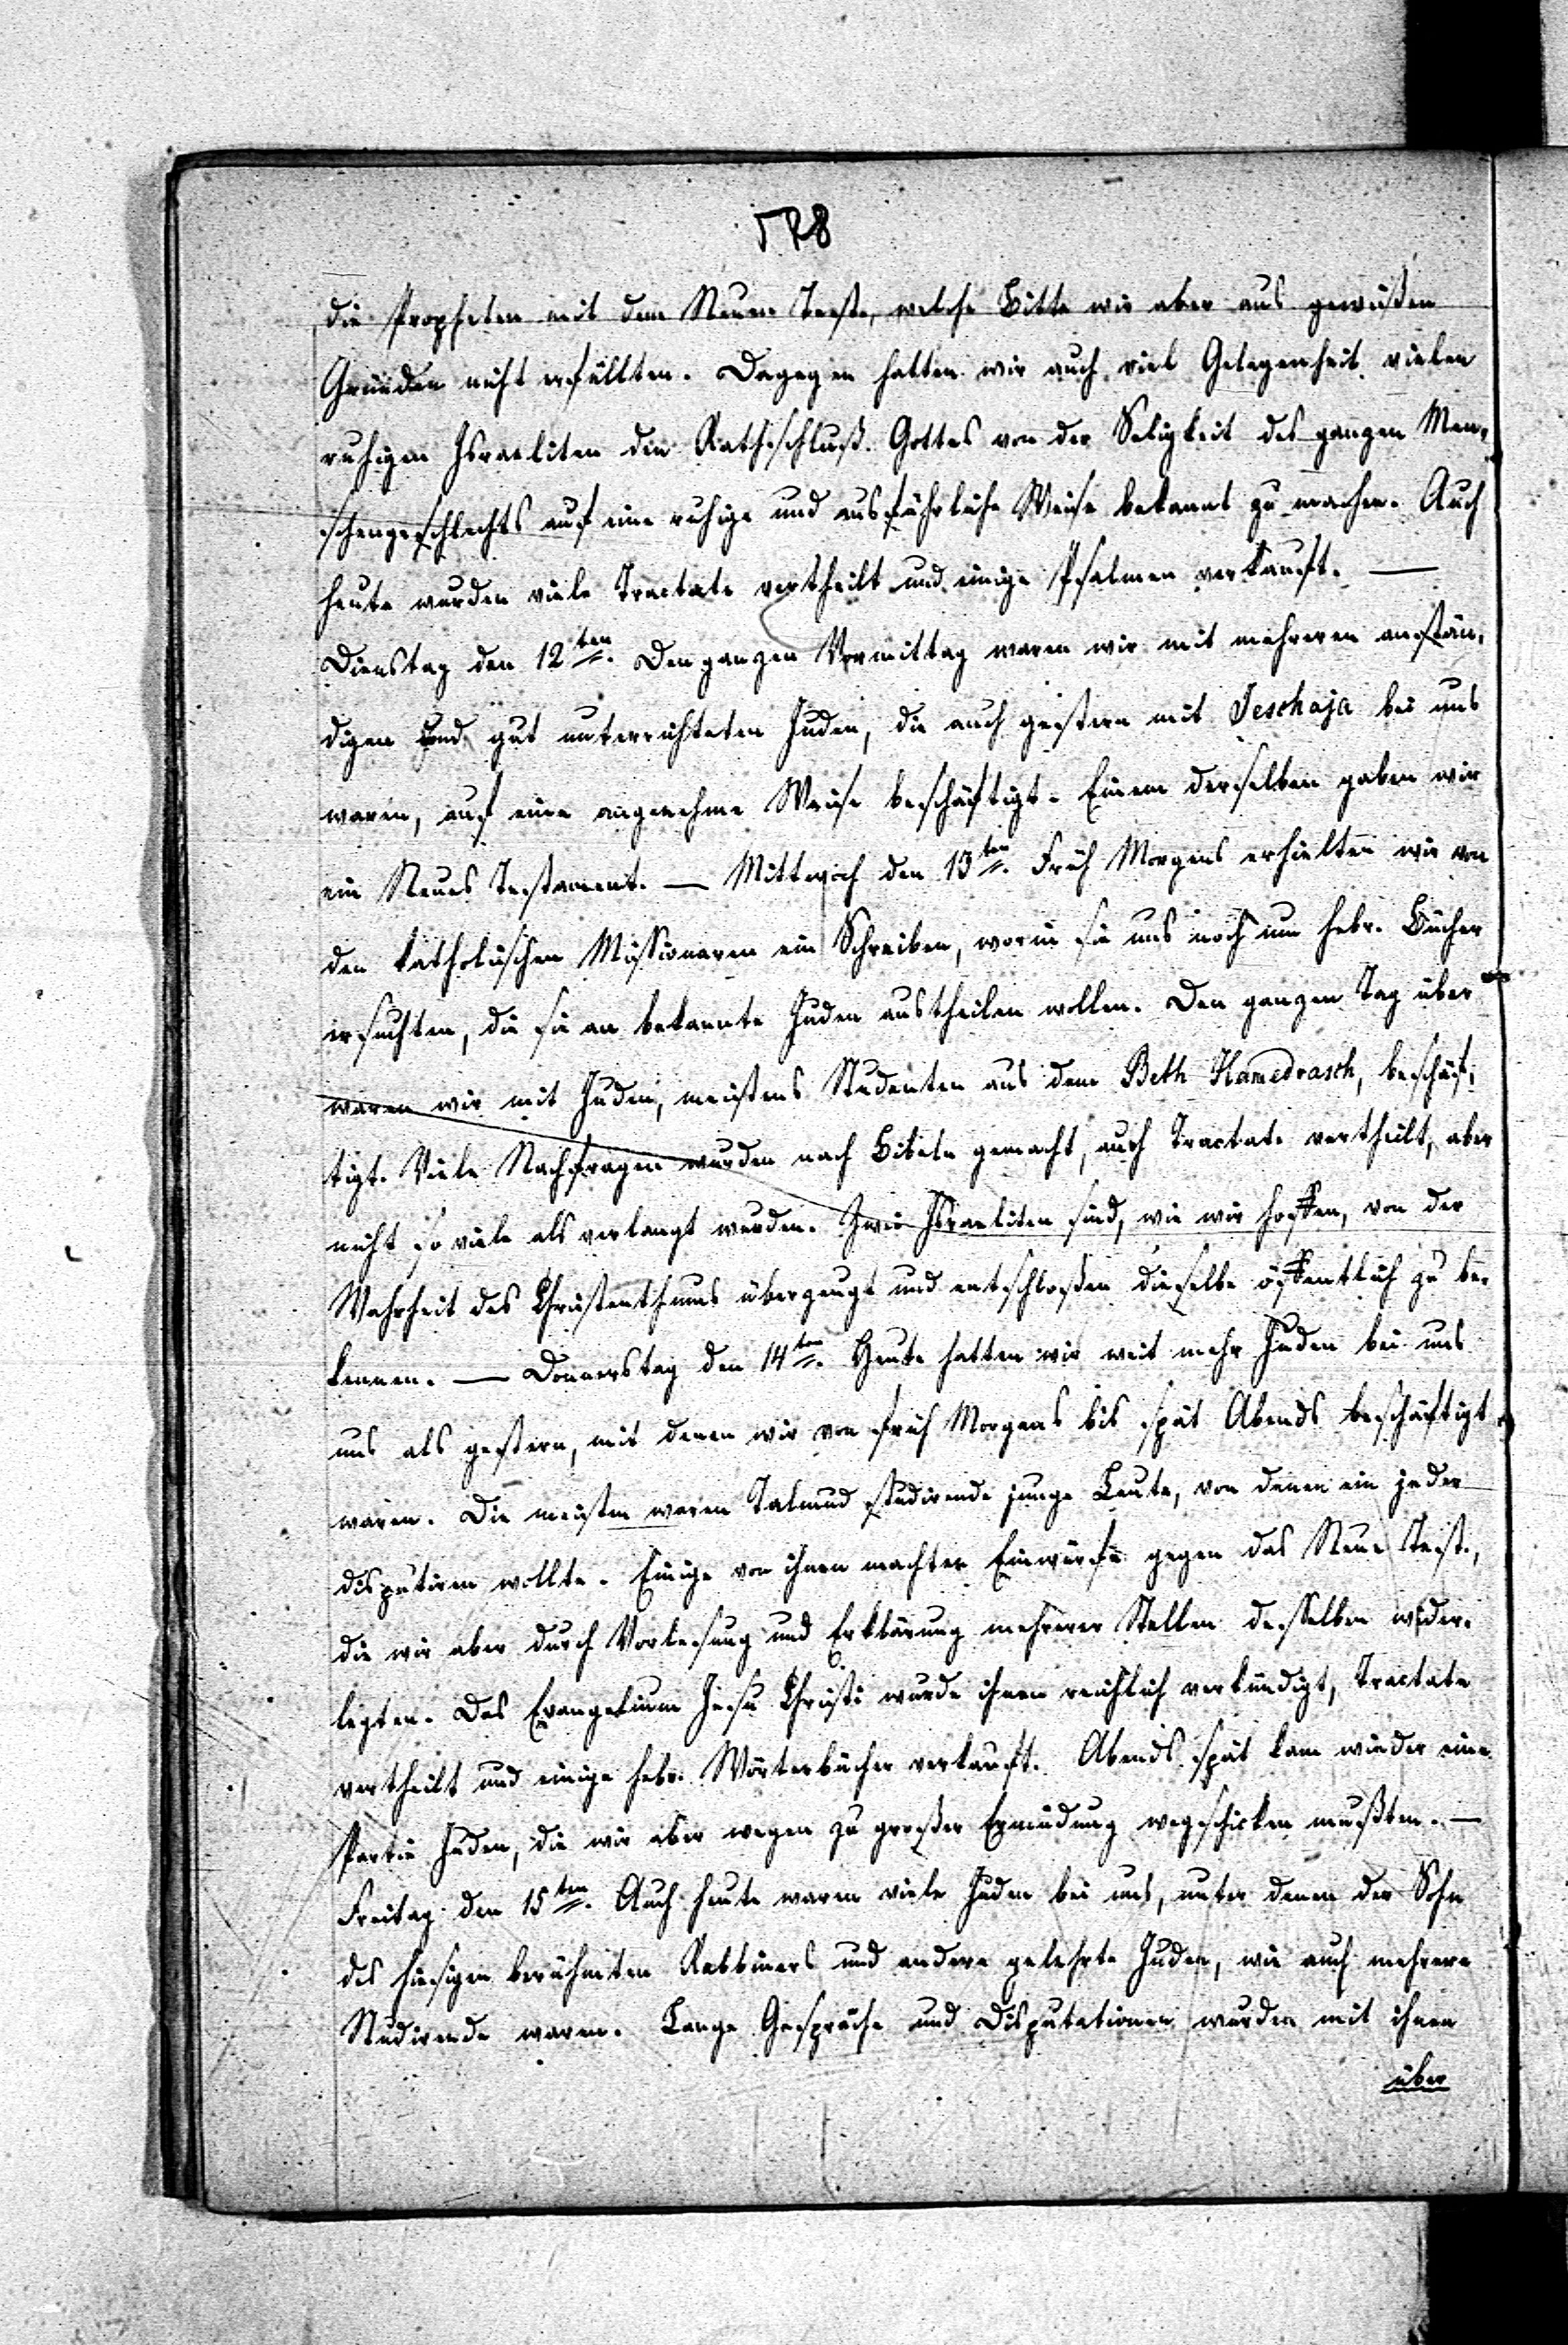 528
die Propheten mit dem Neuen Test., welche Bitte wir aber aus gewißen
Gründen nicht erfüllten. Dagegen hatten wir auch viel Gelegenheit vielen
ruhigen Israeliten den Rathschluß Gottes von der Seligkeit des ganzen Men-
schengeschlechts auf eine ruhige und ausführliche Weise bekannt zu machen. Auch
heute wurden viele Tractate vertheilt und einige Psalmen verkauft. —
Dienstag den 12ten. Den ganzen Vormittag waren wir mit mehreren anstän-
digen und gut unterrichteten Juden, die auch gestern mit Jeschaja bei uns
waren, auf eine angenehme Weise beschäftigt. Einem derselben gaben wir
ein Neues Testament. — Mittwoch den 13ten. Früh Morgens erhielten wir von
den katholischen Missionaren ein Schreiben, worin sie uns noch um hebr. Bücher
ersuchten, die sie an bekannte Juden austheilen wollen. Den ganzen Tag über
waren wir mit Juden, meistens Studenten aus dem Beth Hamedrasch, beschäf-
tigt. Viele Nachfragen wurden nach Bibeln gemacht, auch Tractate vertheilt, aber
nicht so viele als verlangt wurden. Zwei Israeliten sind, wie wir hoffen, von der
Wahrheit des Christenthums überzeugt und entschloßen dieselbe öffentlich zu be-
kennen. — Donnerstag den 14ten. Heute hatten wir weit mehr Juden bei uns
uns als gestern, mit denen wir von früh Morgens bis spät Abends beschäftigt
waren. Die meisten waren Talmud studirende junge Leute, von denen ein jeder
disputiren wollte. Einige von ihnen machten Einwürfe gegen das Neue Test.,
die wir aber durch Vorlesung und Erklärung mehrerer Stellen desselben wider-
legten. Das Evangelium Jesu Christi wurde ihnen reichlich verkündigt, Tractate
vertheilt und einige hebr. Wörterbücher verkauft. Abends spät kam wieder eine
Partie Juden, die wir aber wegen zu großer Ermüdung wegschicken mußten. —
Freitag den 15ten. Auch heute waren viele Juden bei uns, unter denen der Sohn
des hiesigen berühmten Rabbiners und andere gelehrte Juden, wie auch mehrere
Studirende waren. Lange Gespräche und Disputationen wurden mit ihnen
über